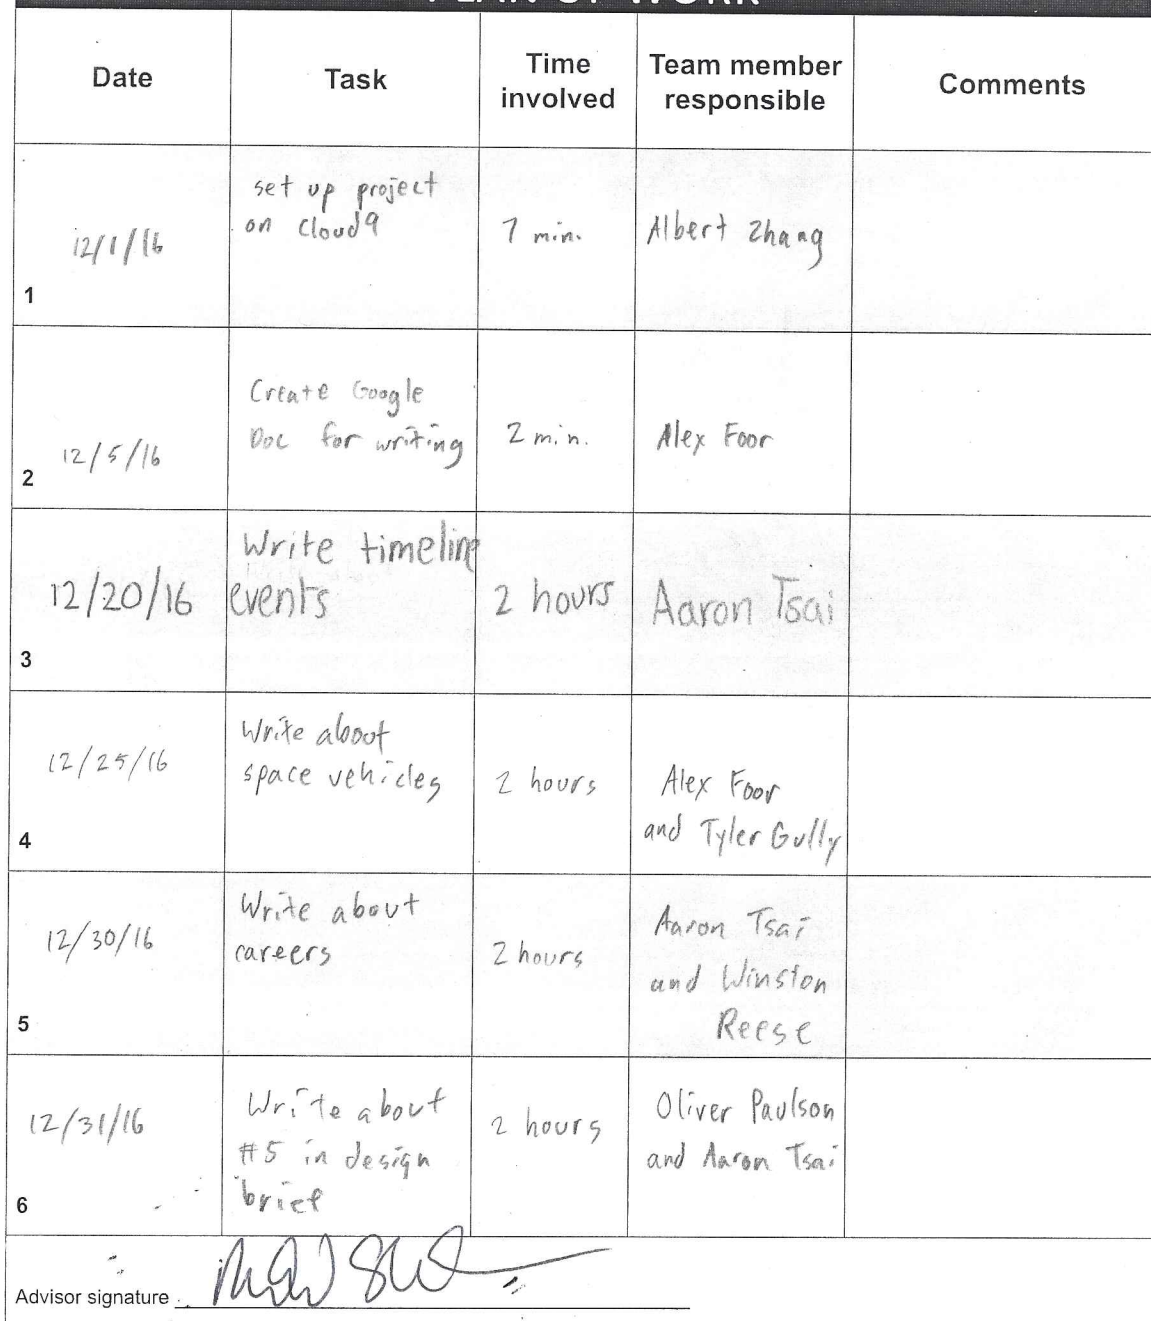 PLAN OF WORK
Date
Task
Time
involved
Team member
responsible
Comments
1
12/1/16
set up project
on cloud9
7 min.
Albert Zhang
2
12/5/16
Create Google
Doc for writing
2 min.
Alex Foor
3
12/20/16
Write timeline
events
2 hours
Aaron Tsai
4
12/25/16
Write about
space vehicles
2 hours
Alex Foor
and Tyler Gully
5
12/30/16
Write about
careers
2 hours
Aaron Tsai
and Winston
Reese
6
12/31/16
Write about
#5 in design
brief
2 hours
Oliver Paulson
and Aaron Tsai
Advisor signature